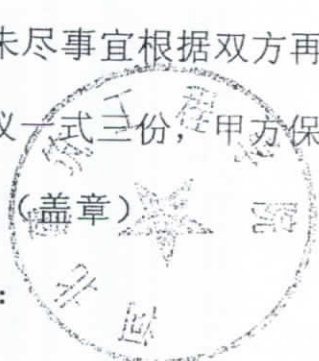 未尽事宜根据双方再
议一式三份，甲方保
（盖章）
：
工程